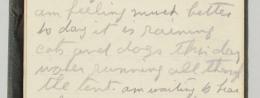 am feeling much better
to day it is raining
cats and dogs this day
water running all through
the tent. am waiting to hear